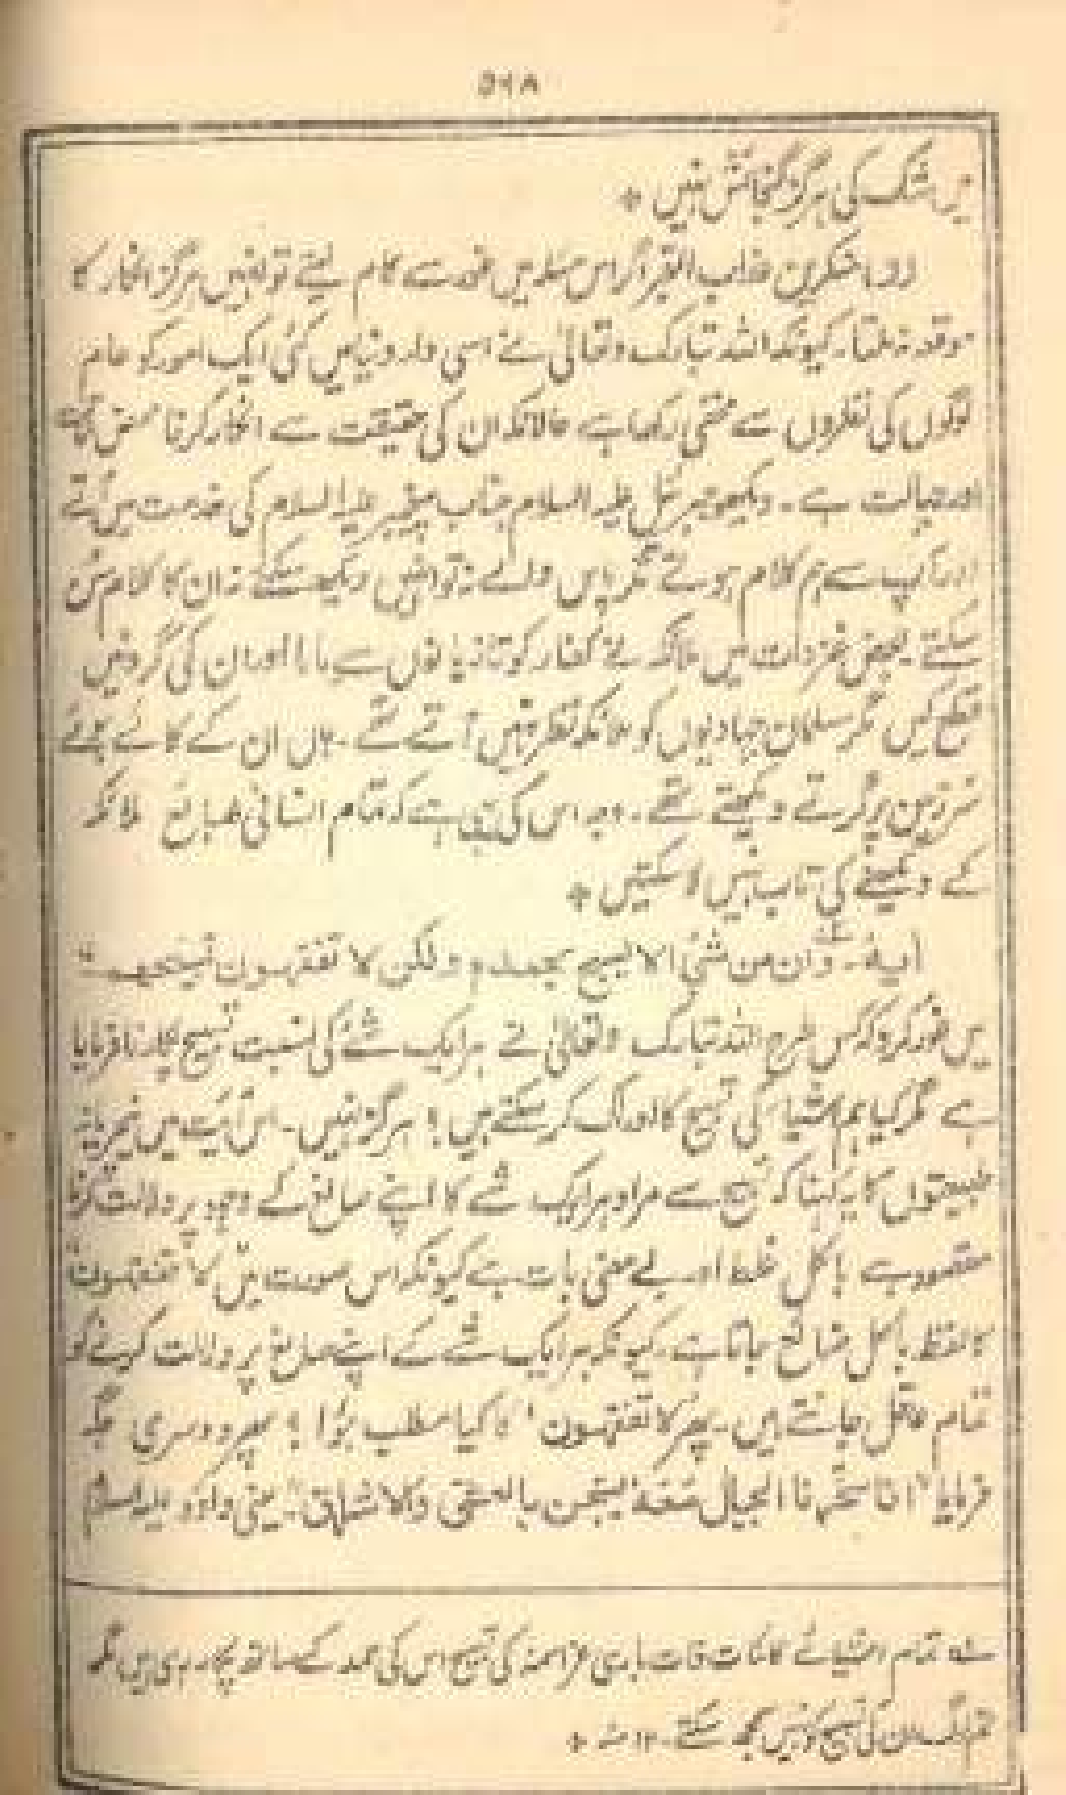 ۵۶۸
میں شک کی ہرگز گنجائش نہیں *
(د) منکرین عذاب القبر اگر اس مسئلہ میں غور سے کام لیتے تو انہیں ہرگز انکار کا
موقعہ نہ ملتا۔ کیونکہ اللہ تبارک وتعالیٰ نے اسی دار دنیا میں کئی ایک امور کو عام
لوگوں کی نظروں سے مخفی رکھا ہے حالانکہ ان کی حقیقت سے انکار کرنا محض
اور جہالت ہے۔ دیکھو جبرئیل علیہ السلام جناب پیغمبر علیہ السلام کی خدمت میں آتے
اور آپ سے ہم کلام ہوتے مگر پاس والے نہ تو انہیں دیکھ سکتے نہ ان کا کلام سن
سکتے۔ بعض غزوات میں ملائکہ نے کفار کو تازیانوں سے مارا اور ان کی گردنیں
قطع کیں مگر مسلمان جہادیوں کو ملائکہ نظر نہیں آتے تھے۔ ہاں ان کے کاٹے ہوئے
سر زمین پر گرتے دیکھتے تھے۔ وجہ اس کی یہ ہے کہ تمام انسانی طبائع ملائکہ
کے دیکھنے کی تاب نہیں لا سکتیں *
آیہ۔ وان من شئ الا یسبح بحمدہ ولکن لا تفقہون تسبیحہم"
میں غور کرو کہ کس طرح اللہ تبارک وتعالیٰ نے ہر ایک شے کی نسبت تسبیح پکارنا فرمایا
ہے مگر کیا ہم اشیا کی تسبیح کا ادراک کر سکتے ہیں؟ ہرگز نہیں۔ اس آیت میں نیچریانہ
طبیعتوں کا یہ کہنا کہ تسبیح سے مراد ہر ایک شے کا اپنے صانع کے وجود پر دلالت کرنا
مقصود ہے بالکل غلط اور بے معنی بات ہے کیونکہ اس صورت میں "لا تفقہون"
کا لفظ بالکل ضائع جاتا ہے۔ کیونکہ ہر ایک شے کے اپنے صانع پر دلالت کرنے کو
تمام عاقل جانتے ہیں۔ پھر لا تفقہون" کا کیا مطلب ہوا؟ پھر دوسری جگہ
فرمایا "انا سخرنا الجبال معہ یسبحن بالعشی والاشراق"۔ یعنی داؤد علیہ السلام
سلہ تمام اشیائے کائنات ذات باری عز اسمہ کی تسبیح اس کی حمد کے ساتھ پکار رہی ہیں مگر
تم لوگ ان کی تسبیح کو نہیں سمجھ سکتے۔ ۱۲ منہ *